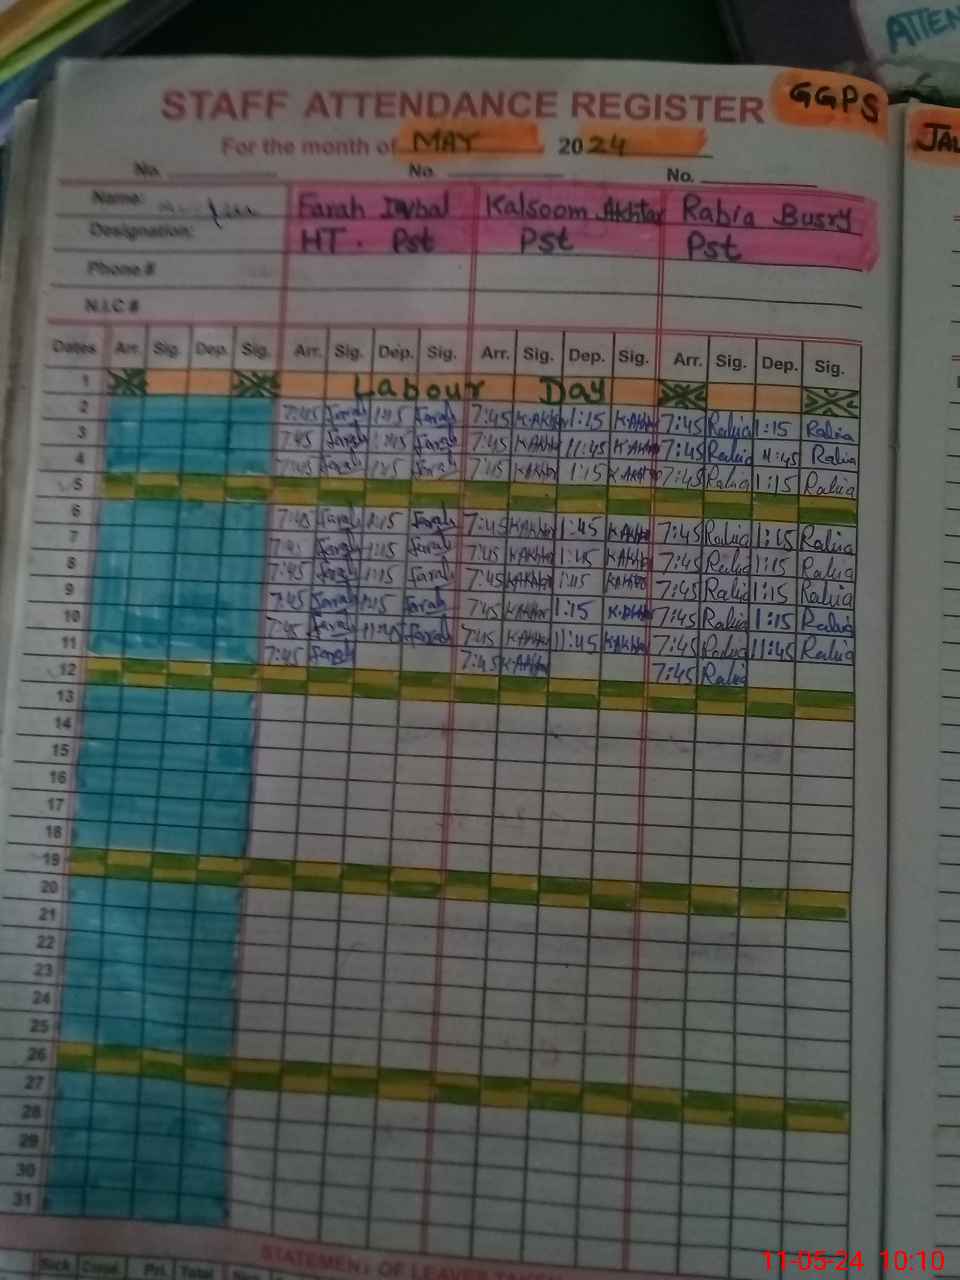 ATTEN
STAFF ATTENDANCE REGISTER GGPS
For the month of MAY 2024
No. No. No.
Name: Farah Iqbal Kalsoom Akhtar Rabia Busry
Designation: HT. Pst Pst Pst
Phone #
N.I.C #
Dates Arr. Sig. Dep. Sig. Arr. Sig. Dep. Sig. Arr. Sig. Dep. Sig. Arr. Sig. Dep. Sig.
1 Labour Day
2 7:45 Farah 1:15 Farah 7:45 K.Akhtar 1:15 K.Akhtar 7:45 Rabia 1:15 Rabia
3 7:45 Farah Farah 7:45 K.Akhtar 11:45 K.Akhtar 7:45 Rabia 11:45 Rabia
4 7:45 Farah 1:15 Farah 7:45 K.Akhtar 1:15 K.Akhtar 7:45 Rabia 1:15 Rabia
5
6 7:45 Farah 1:15 Farah 7:45 K.Akhtar 1:45 K.Akhtar 7:45 Rabia 1:15 Rabia
7 7:45 Farah 1:15 Farah 7:45 K.Akhtar K.Akhtar 7:45 Rabia 1:15 Rabia
8 7:45 Farah 1:15 Farah 7:45 K.Akhtar 1:15 K.Akhtar 7:45 Rabia 1:15 Rabia
9 7:45 Farah 1:15 Farah 7:45 K.Akhtar 1:15 K.Akhtar 7:45 Rabia 1:15 Rabia
10 7:45 Farah 11:45 Farah 7:45 K.Akhtar 11:45 K.Akhtar 7:45 Rabia 11:45 Rabia
11 7:45 Farah 7:45 K.Akhtar 7:45 Rabia
12
13
14
15
16
17
18
19
20
21
22
23
24
25
26
27
28
29
30
31
STATEMENT OF LEAVE TAKEN
Sick Casual Pri. Total
11-05-24 10:10